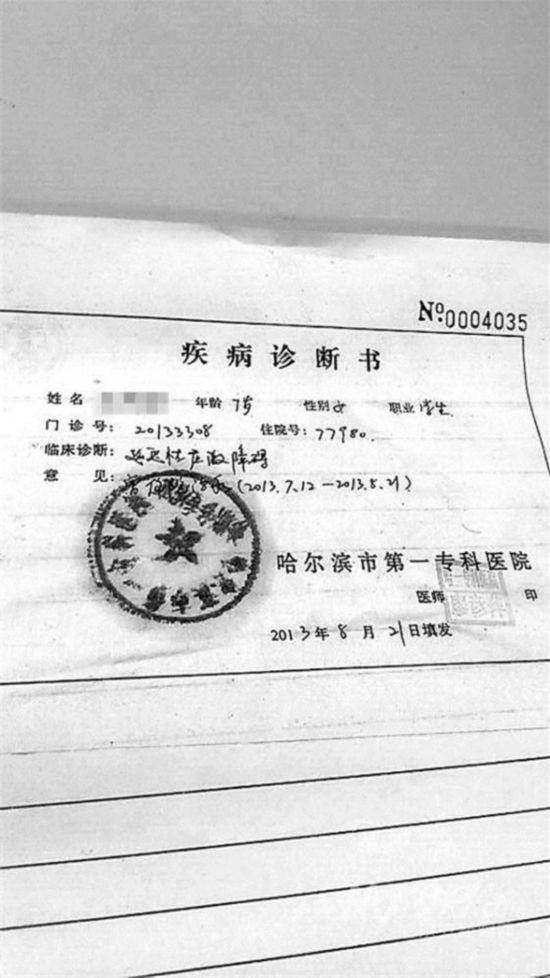 No.0004035
疾病诊断书
姓名 年龄 7岁 性别 女 职业 学生
门诊号: 20133308 住院号: 77980.
临床诊断: 延迟性应激障碍
意 见: (2013.7.12-2013.8.21)
哈尔滨市第一专科医院
医师 印
2013年8月21日填发